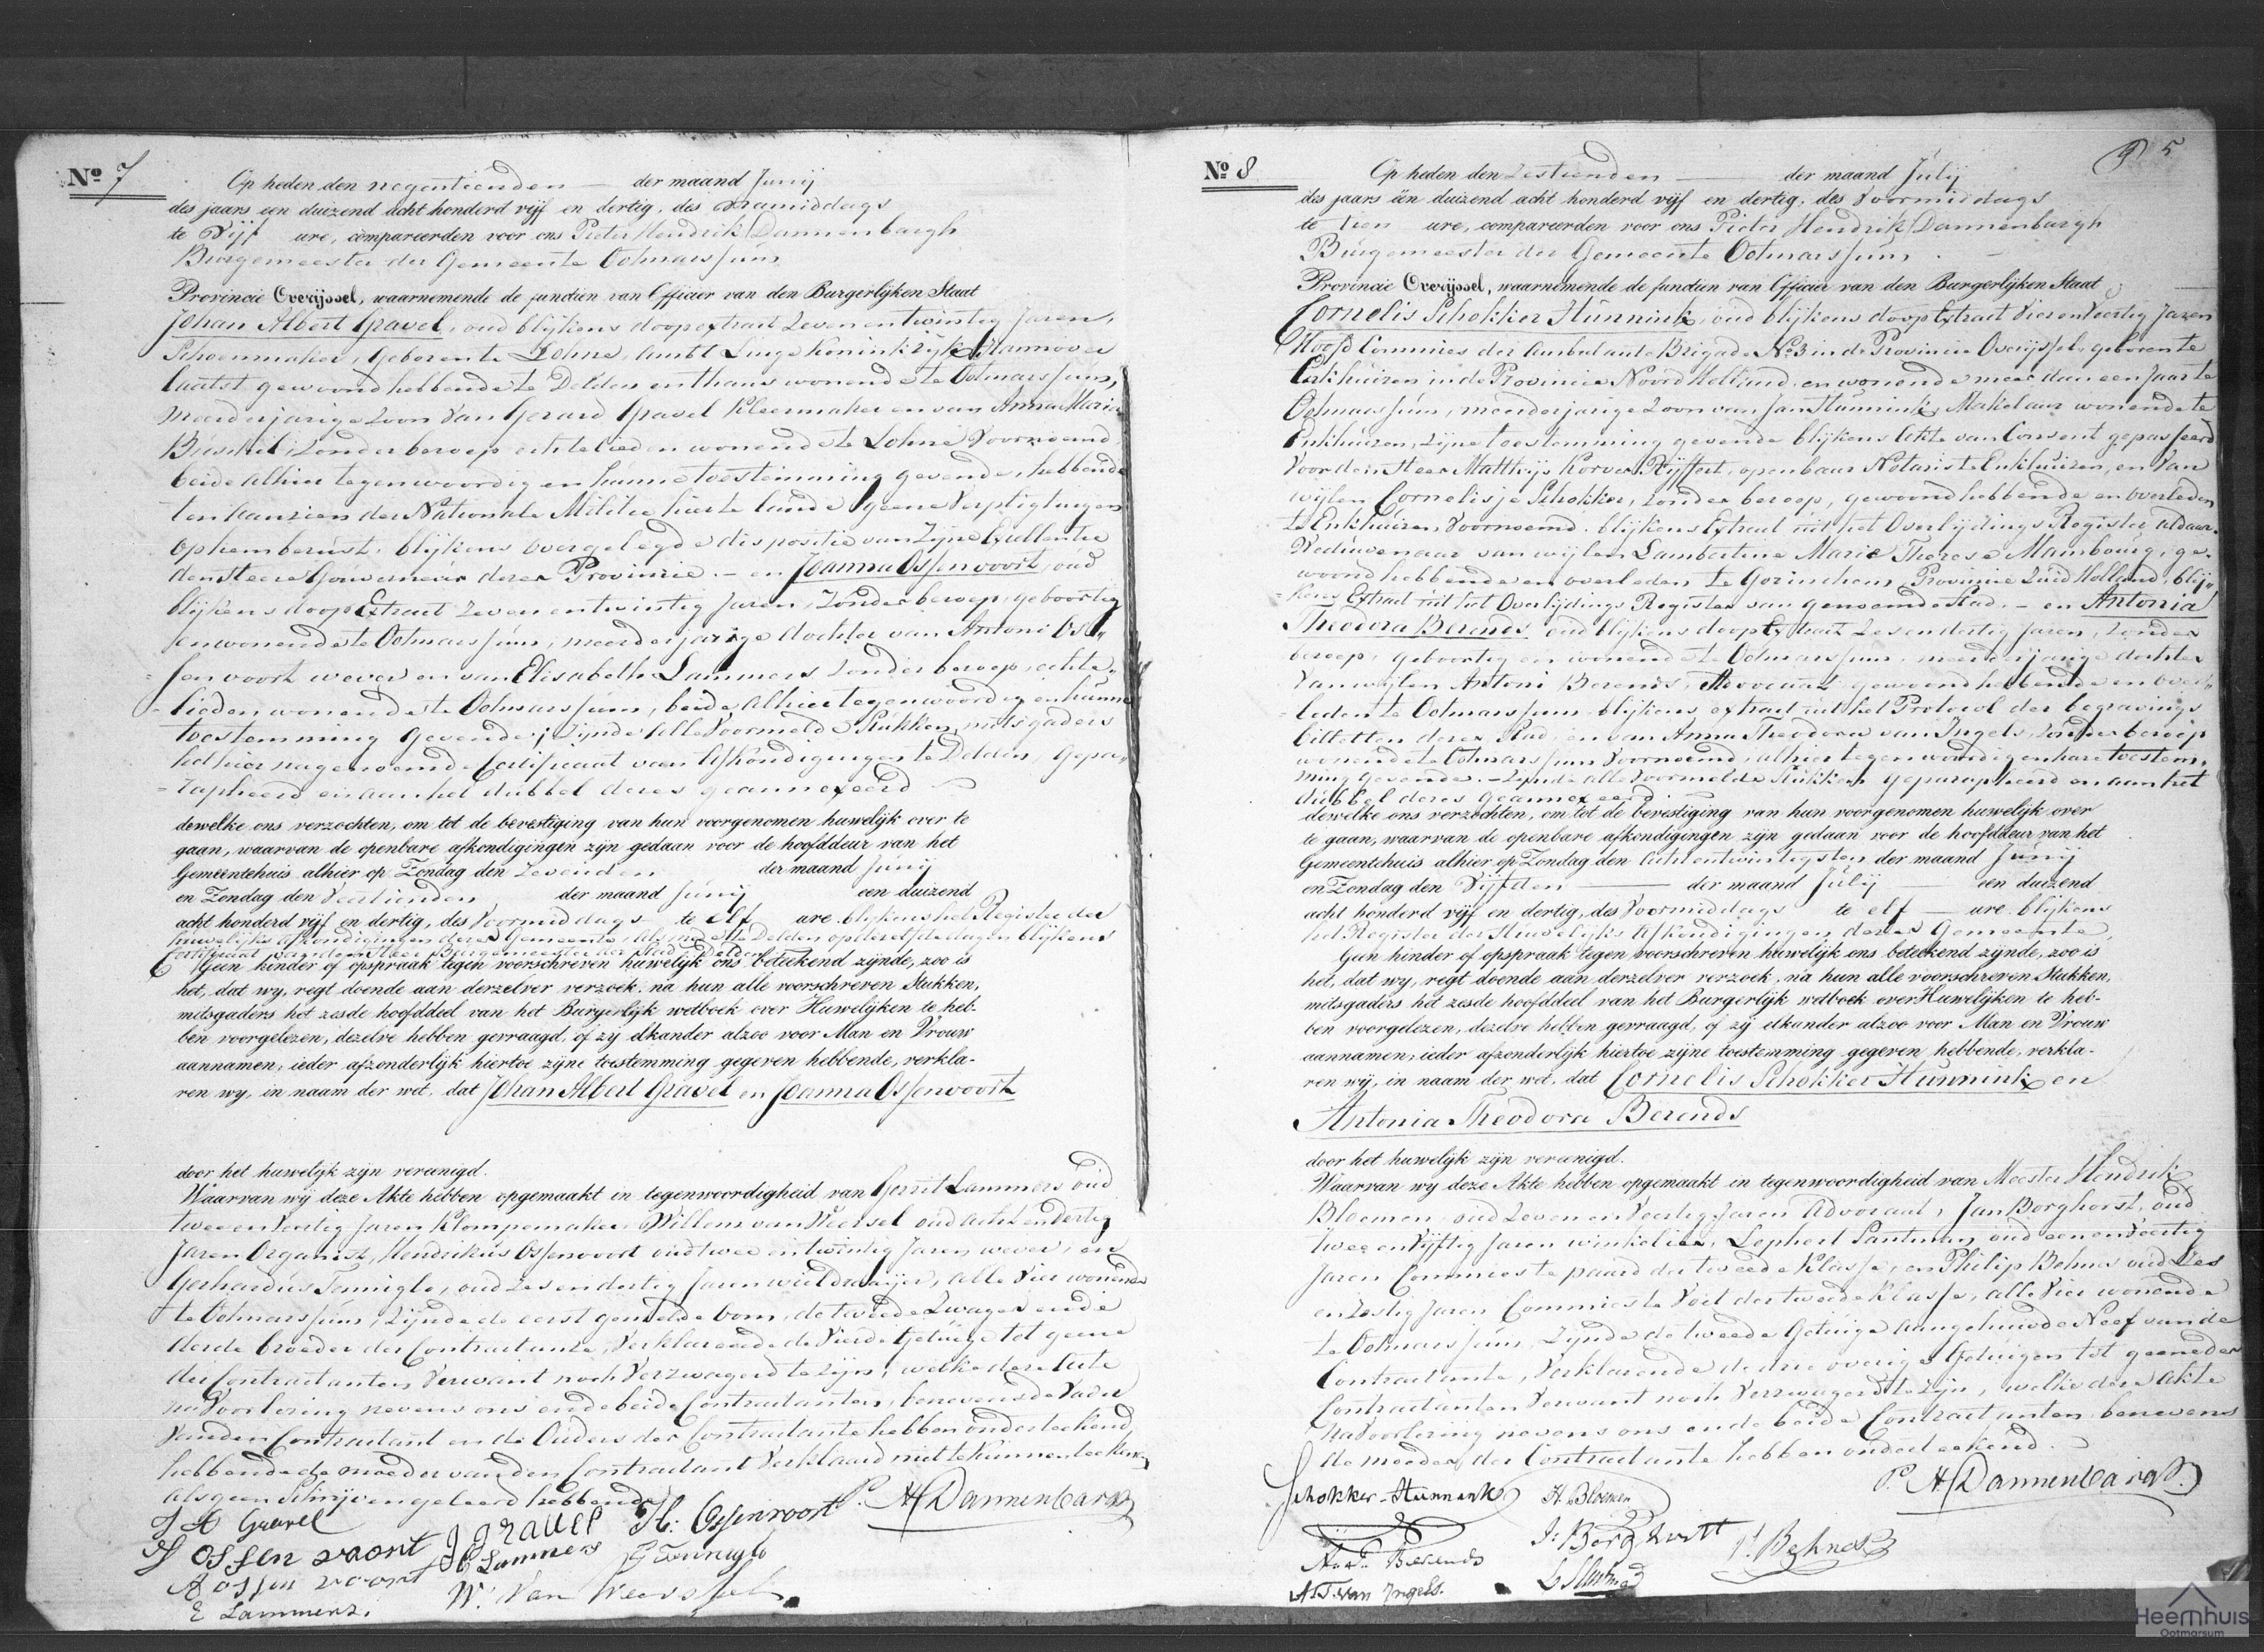 Nº 7
Op heden den negentienden — der maand Junij
des jaars een duizend acht honderd vijf en dertig, des namiddags
te Vijf ure, compareerden voor ons Pieter Hendrik Dannenbargh
Burgemeester der Gemeente Ootmarssum
Provincie Overijssel, waarnemende de functien van Officier van den Burgerlijken Staat
Johan Albert Gravel, oud blijkens doopextract Zevenentwintig Jaren,
Schoenmaker, Geboren te Lohne, Ambt Linge Koninkrijk Hannover
laatst gewoond hebbende te Delden en thans wonende te Ootmarssum,
meerderjarige Zoon van Gerard Gravel Kleermaker en van Anna Maria
zonder beroep echtelieden wonende te Lohne Voornoemd
beide alhier tegenwoordig en hunne toestemming gevende, hebbende
ten aanzien der Nationale Militie hier te lande geene Verpligtingen
op hem berust, blijkens overgelegde dispositie van Zijne Excellentie
den Heere Gouverneur dezer Provincie. – en Joanna Ossenvoort, oud
blijkens doop Extract Zevenentwintig Jaren, Zonder beroep, geboortig
en wonende te Ootmarssum, meerderjarige dochter van Antoni Os„
„senvoort wever en van Elisabeth Lammers Zonder beroep, echte„
„lieden wonende te Ootmarssum, beide alhier tegenwoordig en hunne
toestemming gevende; Zijnde alle Voormelde Stukken, mitsgaders
het hier nagenoemde Certificaat van Afkondigingen te Delden, gepa„
„rapheerd en aan het dubbel dezes geannexeerd
dewelke ons verzochten, om tot de bevestiging van hun voorgenomen huwelijk over te
gaan, waarvan de openbare afkondigingen zijn gedaan voor de hoofddeur van het
Gemeentehuis alhier op Zondag den Zevenden der maand Junij
en Zondag den Veertienden der maand Junij een duizend
acht honderd vijf en dertig, des Voormiddags te elf ure blijkens het Register der
huwelijks afkondigingen dezer Gemeente, alsmede te Delden op dezelfde dagen blijkens
Certificaat van den Heer Burgemeester der Stad Delden
Geen hinder of opspraak tegen voorschreven huwelijk ons beteekend zijnde, zoo is
het, dat wy, regt doende aan derzelver verzoek, na hun alle voorschreven Stukken,
mitsgaders het zesde hoofddeel van het Burgerlijk wetboek over Huwelijken te heb-
ben voorgelezen, dezelve hebben gevraagd, of zij elkander alzoo voor Man en Vrouw
aannamen; ieder afzonderlijk hiertoe zijne toestemming gegeven hebbende, verkla-
ren wy, in naam der wet, dat Johan Albert Gravel en Joanna Ossenvoort
door het huwelijk zijn vereenigd.
Waarvan wij deze Akte hebben opgemaakt in tegenwoordigheid van Gerrit Lammers oud
twee en Veertig Jaren Klompemaker, Willem van Weersel oud acht en dertig
Jaren Organist, Hendrikus Ossenvoort oud twee en twintig Jaren wever, en
Gerhardus Tonnigle, oud Zes en dertig Jaren wieldraaijer, alle Vier wonende
te Ootmarssum, Zijnde de eerst gemelde oom, de tweede Zwager en de
derde broeder der Contractante, Verklarende de Vierde Getuige tot geene
der Contractanten Verwant noch Verzwagerd te zijn; welke deze Acte
na Voorlezing nevens ons en de beide Contractanten, benevens de Vader
van den Contractant en de Ouders der Contractante hebben onderteekend,
hebbende de moeder van den Contractant Verklaard niet te kunnen teekenen
als geen Schrijven geleerd hebbende
J A Gravel
J Ossenvoort J Gravel H: Ossenvoort P. H Dannenbargh
A ossen voort G Lammers G Tonnigle
E Lammers. W. Van Weerssel
Nº 8
5
Op heden den Zestienden — der maand Julij
des jaars een duizend acht honderd vijf en dertig, des Voormiddags
te tien ure, compareerden voor ons Pieter Hendrik Dannenbargh
Burgemeester der Gemeente Ootmarssum
Provincie Overijssel, waarnemende de functien van Officier van den Burgerlijken Staat
Cornelis Schokker Hunnink, oud blijkens doop Extract Vier en Veertig Jaren
Hoofd Commies der Ambulante Brigade No 3 in de Provincie Overijssel, geboren te
Enkhuizen in de Provincie Noord Holland, en wonende meer dan een Jaar te
Ootmarssum, meerderjarige Zoon van Jan Hunnink, Makelaar wonende te
Enkhuizen, zijne toestemming gevende blijkens Akte van Consent gepasseerd
voor den Heer Matthijs Korver openbaar Notaris te Enkhuizen, en van
wijlen Cornelisje Schokker, zonder beroep, gewoond hebbende en overleden
te Enkhuizen, Voornoemd, blijkens Extract uit het Overlijdings Register aldaar.
Weduwenaar van wijlen Lambertine Marie Therese Mambourg, ge„
woond hebbende en overleden te Gorinchem, Provincie Zuid Holland, blij„
„kens Extract uit het Overlijdings Register van genoemde Stad, – en Antonia
Theodora Berends oud blijkens doop Extract Zes en dertig Jaren, Zonder
beroep, geboortig en wonende te Ootmarssum, meerderjarige dochter
van wijlen Antoni Berends, Advocaat gewoond hebbende en over„
„leden te Ootmarssum blijkens extract uit het Protocol der begravings
billetten dezer Stad, en van Anna Theodora van Ingels, Zonder beroep
wonende te Ootmarssum Voornoemd, alhier tegenwoordig en hare toestem„
ming gevende. – Zijnde alle voormelde Stukken geparapheerd en aan het
dubbel dezes geannexeerd. –
dewelke ons verzochten, om tot de bevestiging van hun voorgenomen huwelijk over
te gaan, waarvan de openbare afkondigingen zijn gedaan voor de hoofddeur van het
Gemeentehuis alhier op Zondag den Acht en twintigsten der maand Junij
en Zondag den Vijfden — der maand Julij — een duizend
acht honderd vijf en dertig, des Voormiddags te elf — ure blijkens
het Register der Huwelijks Afkondigingen dezer Gemeente,
Geen hinder of opspraak tegen voorschreven huwelijk ons beteekend zijnde, zoo is
het, dat wy, regt doende aan derzelver verzoek, na hun alle voorschreven Stukken,
mitsgaders het zesde hoofddeel van het Burgerlijk wetboek over Huwelijken te heb-
ben voorgelezen, dezelve hebben gevraagd, of zij elkander alzoo voor Man en Vrouw
aannamen; ieder afzonderlijk hiertoe zijne toestemming gegeven hebbende, verkla-
ren wij, in naam der wet, dat Cornelis Schokker Hunnink en
Antonia Theodora Berends
door het huwelijk zijn vereenigd.
Waarvan wy deze Akte hebben opgemaakt in tegenwoordigheid van Meester Hendrik
Bloemen oud Zeven en Veertig Jaren Advocaat, Jan Borghorst, oud
twee en Vijftig Jaren winkelier, Lephert Santman, oud een en Veertig
Jaren Commies te paard der tweede Klasse, en Philip Behnes oud Zes
en Zestig Jaren Commies te Voet der tweede Klasse, alle Vier wonende
te Ootmarssum, Zijnde de tweede Getuige aangehuwde Neef van de
Contractante, Verklarende de drie overige Getuigen tot geene der
Contractanten Verwant noch Verzwagerd te zijn, welke deze Akte
na Voorlezing nevens ons en de beide Contractanten benevens
de moeder der Contractante hebben onderteekend.
Schokker-Hunnink H. Bloemen P. H Dannenbargh
J: Borghorst P. Behnes
Berends
A T van Ingels. L Santman
Heemhuis
Ootmarsum